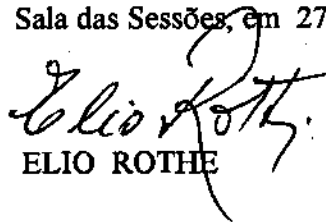 Sala das Sessões, em 27
Elio Rothe.
ELIO ROTHE